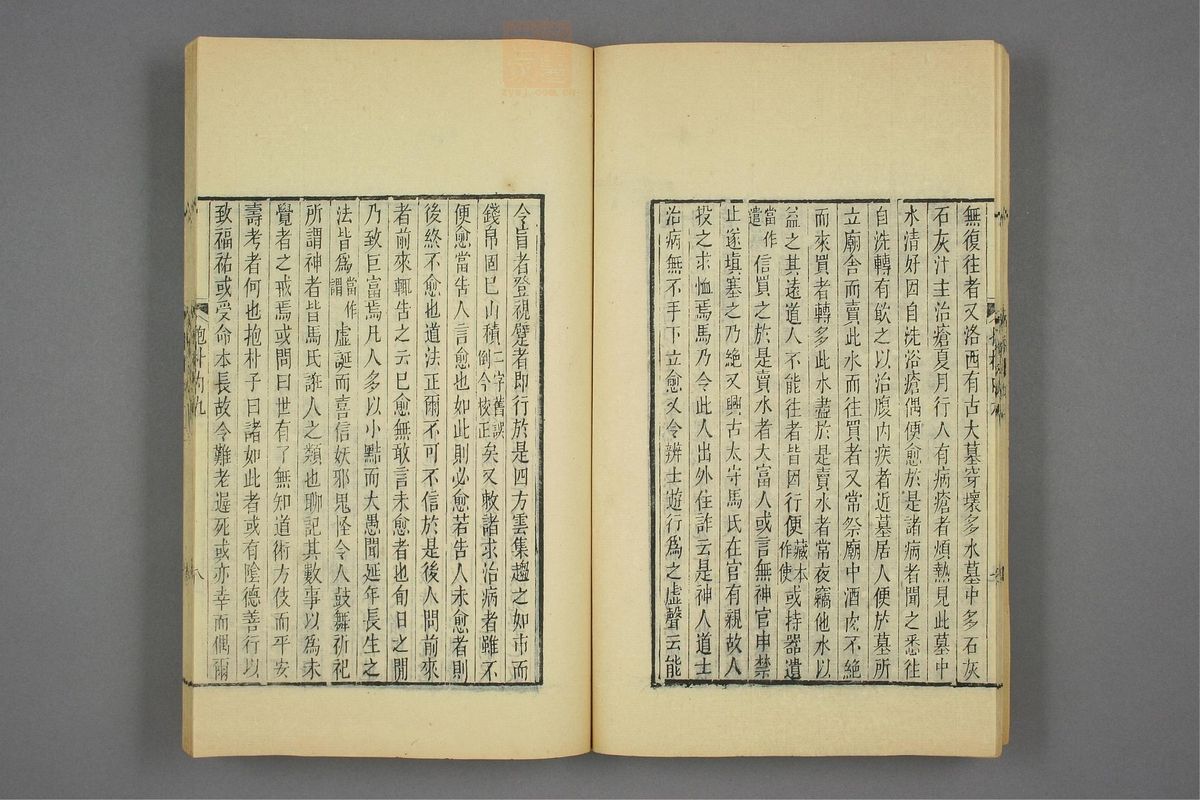 無復往者又洛西有古大墓穿壞多水墓中多石灰
石灰汁主治瘡夏月行人有病瘡者煩熱見此墓中
水清好因自洗浴瘡偶便愈於是諸病者聞之悉往
自洗轉有飲之以治腹內疾者近墓居人便於墓所
立廟舍而賣此水而往買者又常祭廟中酒肉不絕
而來買者轉多此水盡於是賣水者常夜竊他水以
益之其遠道人不能往者皆因行便藏本作使或持器遺
當作遣信買之於是賣水者大富人或言無神官申禁
止遂填塞之乃絕又興古太守馬氏在官有親故人
投之求恤焉馬乃令此人出外住詐云是神人道士
治病無不手下立愈又令辨士遊行爲之虛聲云能
令盲者登視躄者即行於是四方雲集趨之如市而
錢帛固已山積二字舊誤倒今校正矣又敕諸求治病者雖不
便愈當告人言愈也如此則必愈若告人未愈者則
後終不愈也道法正爾不可不信於是後人問前來
者前來輒告之云已愈無敢言未愈者也旬日之閒
乃致巨富焉凡人多以小黠而大愚聞延年長生之
法皆爲當作謂虛誕而喜信妖邪鬼怪令人鼓舞祈祀
所謂神者皆馬氏誑人之類也聊記其數事以爲未
覺者之戒焉或問曰世有了無知道術方伎而平安
壽考者何也抱朴子曰諸如此者或有陰德善行以
致福祐或受命本長故令難老遲死或亦幸而偶爾
抱朴內九
八